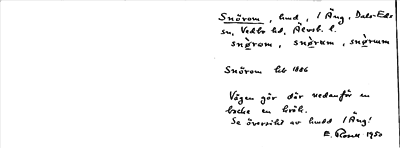 Snörom, hmd, i Äng, Dals-Eds
sn, Vedbo hd, Älvsb. l.
snø̀rom, snø̀rum, snø̀rum
Snörom hb 1886
Vägen gör där nedanför en
backe en krök.
Se översikt av hmdd i Äng!
E. Rosell 1950